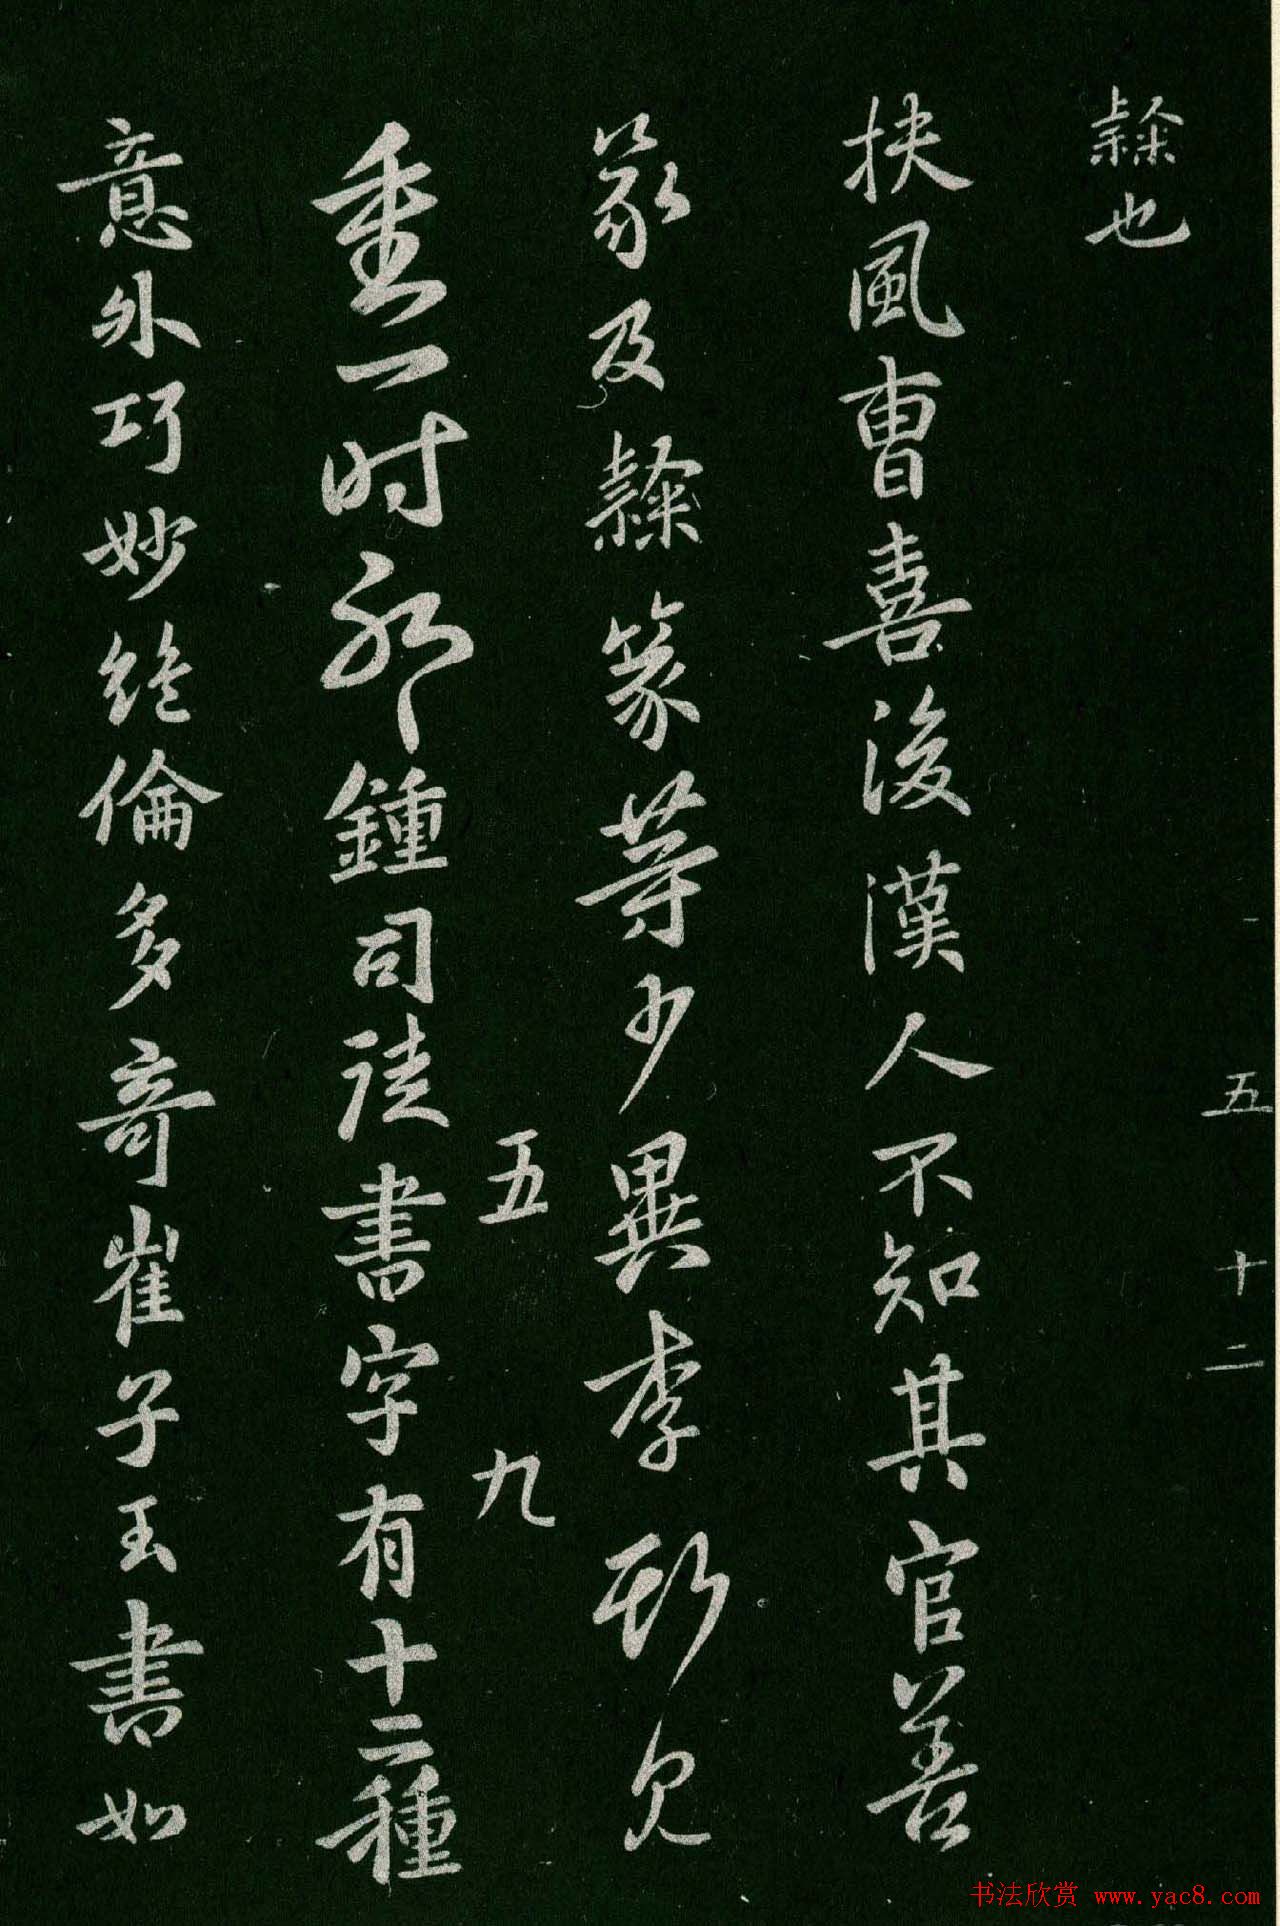 五 十二
隸也
扶風曹喜後漢人不知其官善
篆及隸篆等少異李斯見
五 九
重一時耶鍾司徒書字有十二種
意外巧妙絕倫多奇崔子玉書如
书法欣赏 www.yac8.com